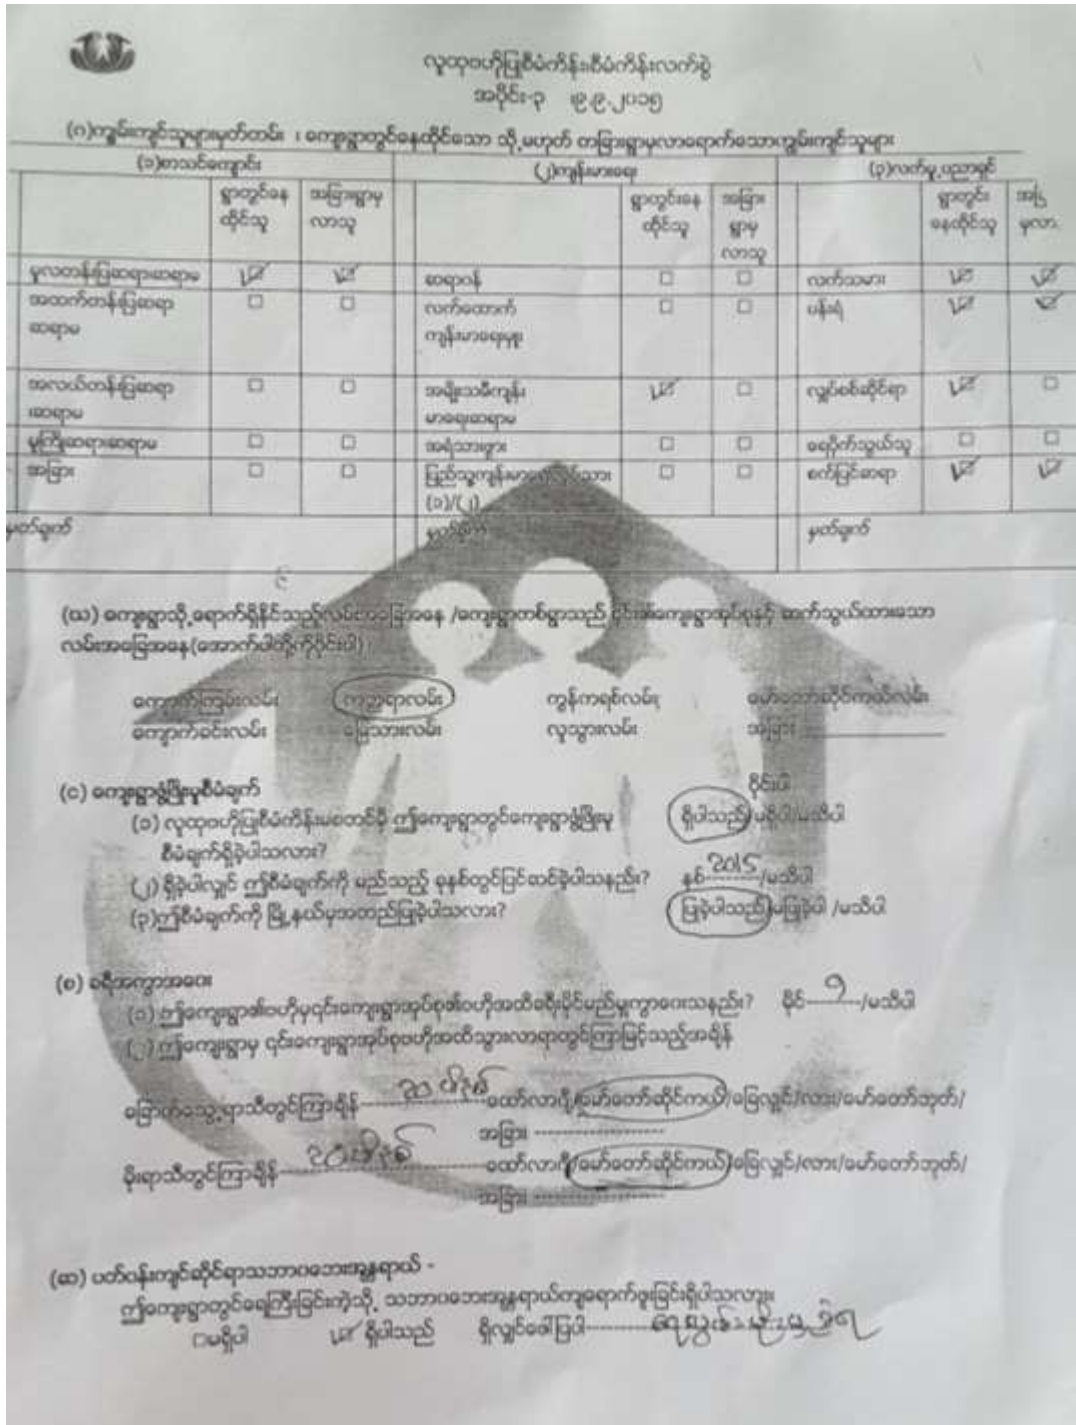 လူထုဗဟိုပြုစီမံကိန်း၊စီမံကိန်းလက်စွဲ
အပိုင်း-၃ ၊၉.၉.၂၀၁၅
(ဂ)ကျွမ်းကျင်သူများမှတ်တမ်း ၊ ကျေးရွာတွင်နေထိုင်သော သို့မဟုတ် တခြားရွာမှလာရောက်သောကျွမ်းကျင်သူများ
(၁)စာသင်ကျောင်း (၂)ကျန်းမားရေး (၃)လက်မှု့ပညာရှင်
ရွာတွင်နေထိုင်သူ အခြားရွာမှလာသူ ရွာတွင်းနေထိုင်သူ အခြားရွာမှလာသူ ရွာတွင်းနေထိုင်သူ မှလာ
မူလတန်းပြဆရာ၊ဆရာမ ဆရာဝန် လက်သမား
အထက်တန်းပြဆရာ လက်ထောက် ပန်းရံ
ဆရာမ ကျန်းမာရေးမှူး
အလယ်တန်းပြဆရာ အမျိုးသမီကျန်း လျှပ်စစ်ဆိုင်ရာ
၊ဆရာမ မာရေးဆရာမ
မူကြိုဆရာ၊ဆရာမ အရံသားဖွား ရေပိုက်သွယ်သူ
အခြား ပြည်သူ့ကျန်းမာရေး စက်ပြင်ဆရာ
(၁)/(၂)
မှတ်ချက် မှတ်ချက် မှတ်ချက်
(ဃ) ကျေးရွာသို့ရောက်ရှိနိုင်သည့်လမ်းအခြေအနေ /ကျေးရွာတစ်ရွာသည် ၄င်း၏ကျေးရွာအုပ်စုနှင့် ဆက်သွယ်ထားသော
လမ်းအခြေအနေ(အောက်ပါတို့ကိုဝိုင်းပါ)
ကျောက်ကြမ်းလမ်း ကတ္တရာလမ်း ကွန်ကရစ်လမ်း မော်တော်ဆိုင်ကယ်လမ်း
ကျောက်ခင်းလမ်း မြေသားလမ်း လူသွားလမ်း အခြား
(င) ကျေးရွာဖွံ့ဖြိုးမှုစီမံချက် ဝိုင်းပါ
(၁) လူထုဗဟိုပြုစီမံကိန်းမစတင်မှီ ဤကျေးရွာတွင်ကျေးရွာဖွံ့ဖြိုးမှု ရှိပါသည်/မရှိပါ/မသိပါ
စီမံချက်ရှိခဲ့ပါသလား?
(၂) ရှိခဲ့ပါလျှင် ဤစီမံချက်ကို မည်သည့် ခုနှစ်တွင်ပြင်ဆင်ခဲ့ပါသနည်း? နှစ် 2015 /မသိပါ
(၃)ဤစီမံချက်ကို မြို့နယ်မှအတည်ပြုခဲ့ပါသလား? ပြုခဲ့ပါသည်/မပြုခဲ့ပါ /မသိပါ
(စ) ခရီးအကွာအဝေး
(၁) ဤကျေးရွာ၏ဗဟိုမှ၎င်းကျေးရွာအုပ်စု၏ဗဟိုအထိခရီးမိုင်မည်မျှကွာဝေးသနည်း? မိုင် ၇ /မသိပါ
(၂) ဤကျေးရွာမှ ၎င်းကျေးရွာအုပ်စုဗဟိုအထိသွားလာရာတွင်ကြာမြင့်သည့်အချိန်
ခြောက်သွေ့ရာသီတွင်ကြာချိန် ၃၁ မိနစ် ထော်လာဂျီ/မော်တော်ဆိုင်ကယ်/ခြေလျှင်/လား/မော်တော်ဘုတ်/
အခြား
မိုးရာသီတွင်ကြာချိန် မိနစ် ထော်လာဂျီ/မော်တော်ဆိုင်ကယ်/ခြေလျှင်/လား/မော်တော်ဘုတ်/
အခြား
(ဆ) ပတ်ဝန်းကျင်ဆိုင်ရာသဘာဝဘေးအန္တရာယ် -
ဤကျေးရွာတွင်ရေကြီးခြင်းကဲ့သို့ သဘာဝဘေးအန္တရာယ်ကျရောက်ဖူးခြင်းရှိပါသလား။
မရှိပါ ရှိပါသည် ရှိလျှင်ဖေါ်ပြပါ